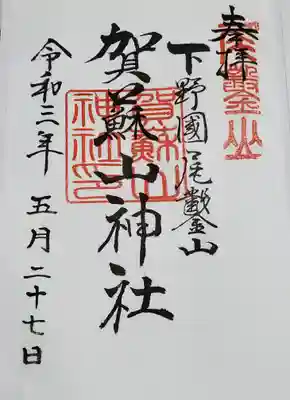 奉拝
下野國尾鑿山
賀蘇山神社
賀蘇山
神社印
令和三年五月二十七日